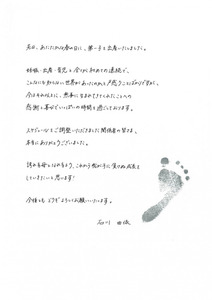 先日、あたたかな春の日に、第一子を出産いたしました。
妊娠・出産・育児と今までに初めての連続で、
こんなにも知らない世界があったのかと戸惑うことばかりですが、
今はそれ以上に、無事に生まれてきてくれたことへの
感謝と喜びでいっぱいの時間を過ごしております。
スケジュールをご調整いただきました関係者の皆さま、
本当にありがとうございました。
誇れる母となれるよう、これから我が子に負けぬ成長を
していきたいと思います!
今後ともどうぞよろしくお願いいたします。
石川 由依